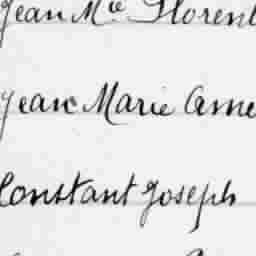 Jean Mie Florent
Jean Marie Ame
Constant Joseph